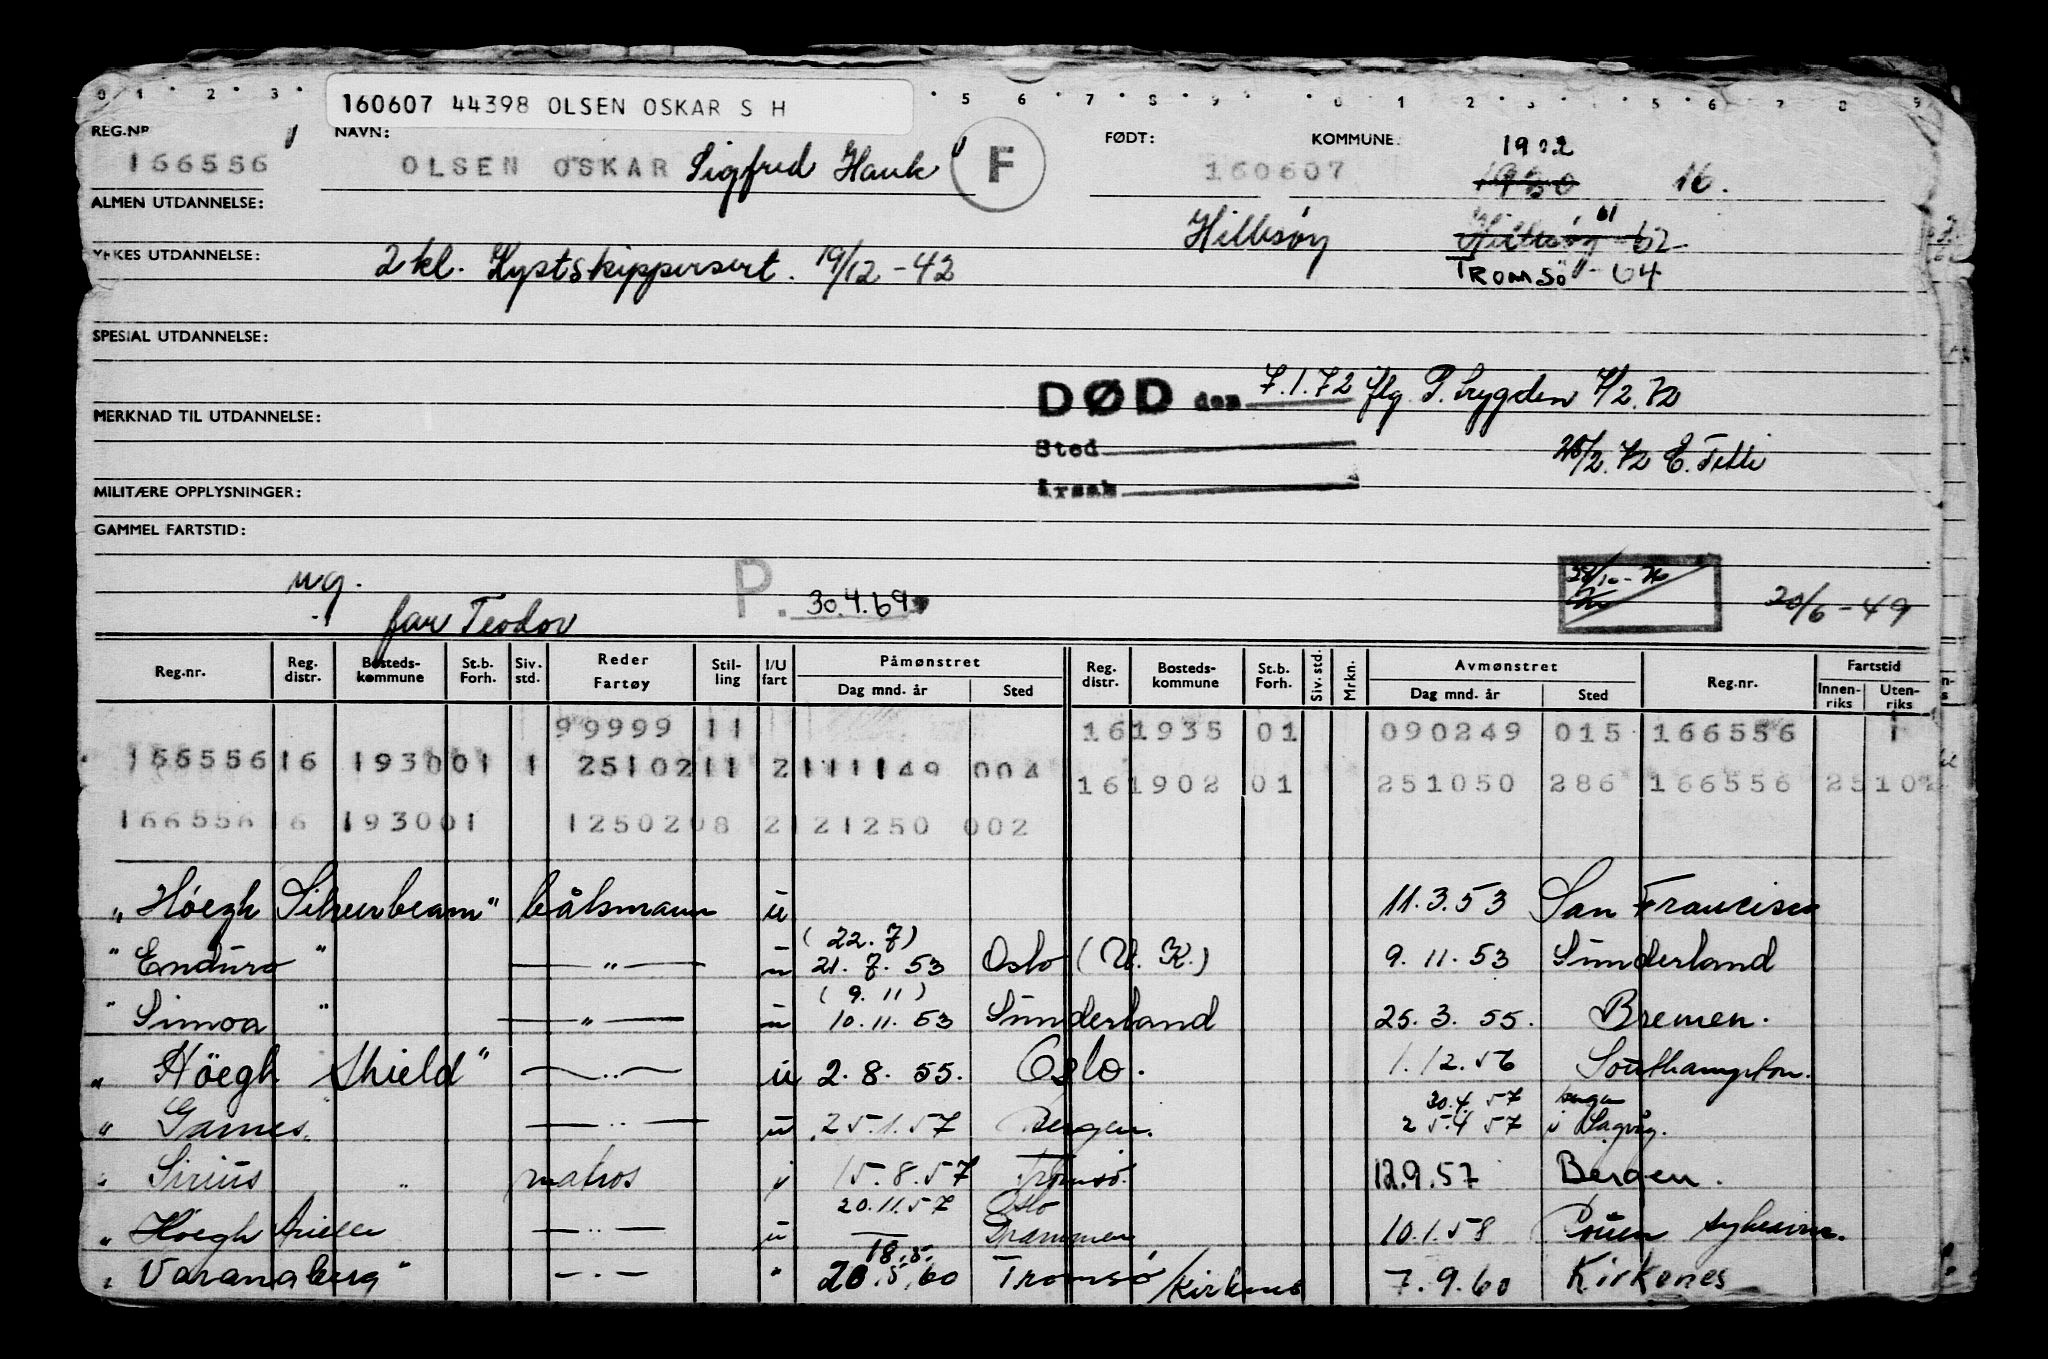 0 1 2 3 5 6 7 8 9 0 1 2 3 4 5 6 7 8 9
160607 44398 OLSEN OSKAR S H
REG.NR NAVN: FØDT: KOMMUNE: 1902
166556 OLSEN OSKAR Sigfred Hauk F 160607 1930 16.
ALMEN UTDANNELSE: Hillesöy 62
YRKES UTDANNELSE: 2 kl. Kystskippersert. 19/12-42 TROMSÖ - 64
SPESIAL UTDANNELSE:
DØD den 7.1.72 flg. P. trygden 7/2.72
MERKNAD TIL UTDANNELSE:
Sted 28/2.72 E.
MILITÆRE OPPLYSNINGER: Årsak
GAMMEL FARTSTID:
ug. P. 30.4.69 20/6-49
far Teodor
Reg.nr. Reg. distr. Bosteds- kommune St.b. Forh. Siv. std. Reder Fartøy Stil- ling I/U fart Påmønstret Dag mnd. år Sted Reg. distr. Bosteds- kommune St.b. Forh. Siv. std. Mrkn. Avmønstret Dag mnd. år Sted Reg.nr. Fartstid Innen- riks Uten- riks
99999 11 16 1935 01 090249 015 166556 1
166556 16 1930 01 1 25102 11 2 111149 004
16 1902 01 251050 286 166556 2510
166556 16 1930 01 125020 8 2 121250 002
"Höegh Silverbeam" båtsmann u 11.3.53 San Francisco
(22.7)
"Enduro" — " — u 21.7.53 Oslo (U.K.) 9.11.53 Sunderland
(9.11)
"Simoa" — " — u 10.11.53 Sunderland 25.3.55. Bremen.
"Höegh Shield" — " — u 2.8.55. Oslo. 1.12.56 Southampton.
30.4.57
"Garnes" — " — u 25.1.57 Bergen. 25.4.57 i
"Sirius" matros i 15.8.57 Tromsö. 12.9.57 Bergen.
20.11.57 Oslo
"Höegh — " — u Drammen 10.1.58
18.5.
"Varangberg" — " — " 20.5.60 Tromsö/Kirkenes 7.9.60 Kirkenes